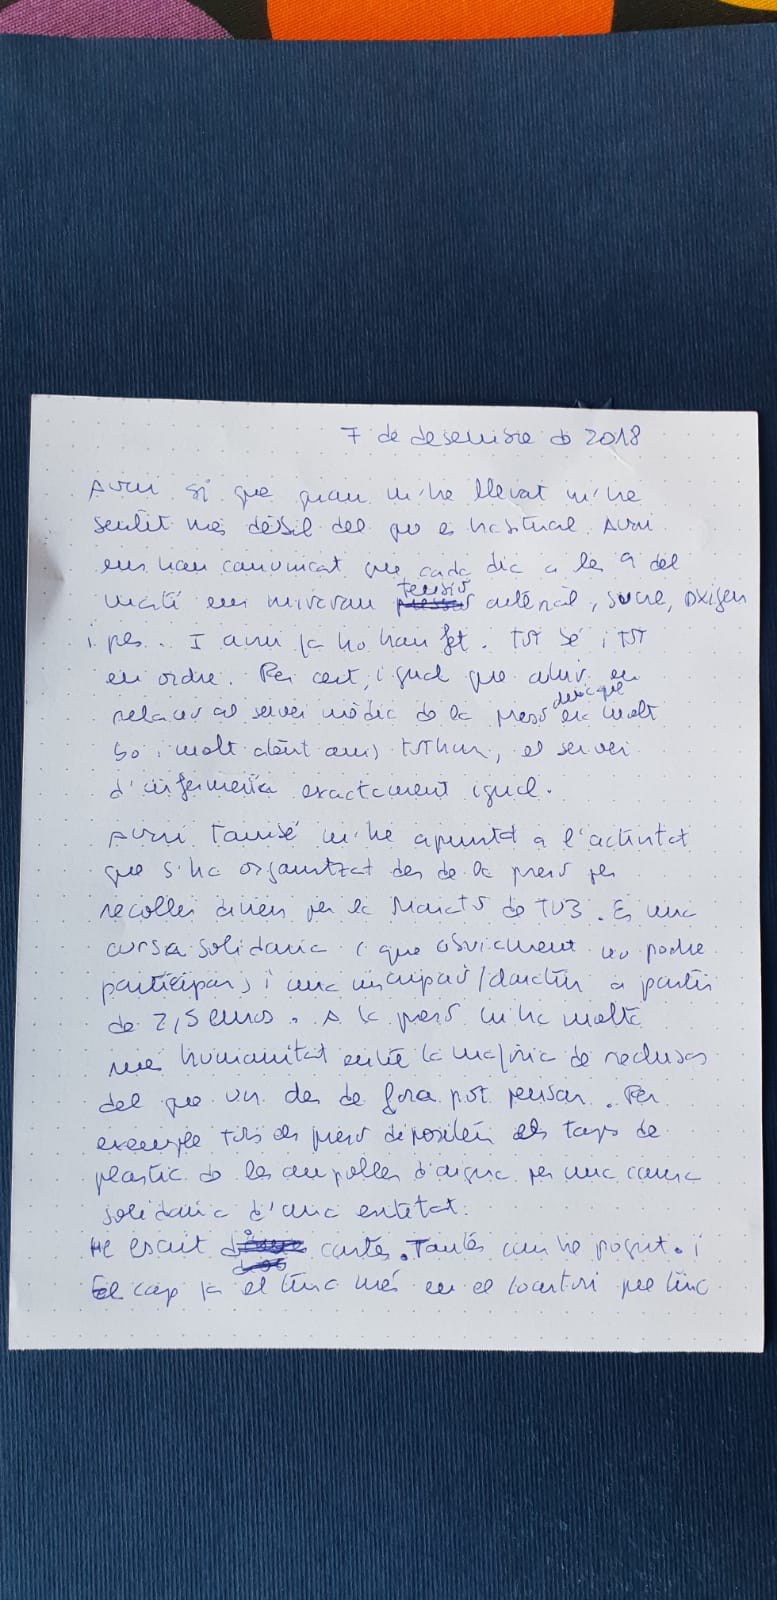 7 de desembre de 2018
Avui sí que quan m'he llevat m'he
sentit més dèbil del que és habitual. Avui
ens han comunicat que cada dia a les 9 del
matí ens miraran tensió arterial, sucre, oxigen
i pes. I avui ja ho han fet. Tot bé i tot
en ordre. Per cert, igual que ahir en
relació al servei mèdic de la presó deia que era molt
bo i molt atent amb tothom, el servei
d'infermeria exactament igual.
Avui també m'he apuntat a l'activitat
que s'ha organitzat des de la presó per
recollir diners per la Marató de TV3. És una
cursa solidaria (que obviament no podré
participar) i una inscripció/donatiu a partir
de 2,5 euros. A la presó hi ha molta
més humanitat entre la majoria de reclusos
del que un des de fora pot pensar. Per
exemple tots els presos dipositen els taps de
plastic de les ampolles d'aigua per una causa
solidaria d'una entitat.
He escrit cartes. Tantes com he pogut. i
El cap ja el tinc més en el locutori que tinc